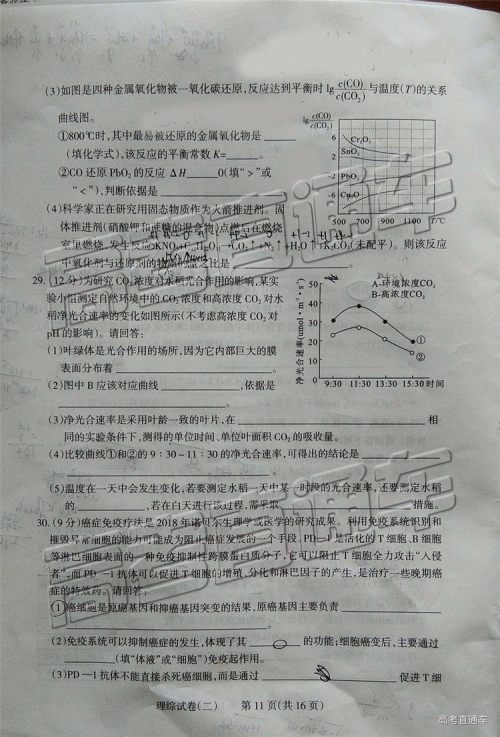 (3)如图是四种金属氧化物被一氧化碳还原,反应达到平衡时lg c(CO)/c(CO₂)与温度(T)的关系
曲线图。
①800℃时,其中最易被还原的金属氧化物是
(填化学式),该反应的平衡常数K=______。
②CO还原PbO₂的反应ΔH______0(填“>”或
“<”),判断依据是
lg c(CO)/c(CO₂)
6
Cr₂O₃
SnO₂
2
-2
PbO₂
-6
Cu₂O
500 700 900 1100 T/℃
(4)科学家正在研究用固态物质作为火箭推进剂。固
体推进剂(硝酸钾和蔗糖的混合物)点燃后在燃烧
室里燃烧,发生反应KNO₃+C₁₂H₂₂O₁₁→CO₂↑+N₂↑+H₂O↑+K₂CO₃(未配平)。则该反应
中氧化剂与还原剂的物质的量之比是
29.(12分)为研究CO₂浓度对水稻光合作用的影响,某实
验小组测定自然环境中的CO₂浓度和高浓度CO₂对水
稻净光合速率的变化如图所示(不考虑高浓度CO₂对
pH的影响)。请回答:
(1)叶绿体是光合作用的场所,因为它内部巨大的膜
表面分布着______。
(2)图中B应该对应曲线______,依据是
______。
净光合速率(umol·m⁻²·s⁻¹)
50
40
30
20
10
0
A-环境浓度CO₂
B-高浓度CO₂
①
②
9:30 11:30 13:30 15:30 时间
(3)净光合速率是采用叶龄一致的叶片,在______相
同的实验条件下,测得的单位时间、单位叶面积CO₂的吸收量。
(4)比较曲线①和②的9:30~11:30的净光合速率,可得出的结论是
______。
(5)温度在一天中会发生变化,若要测定水稻一天中某一时段的光合速率,还要测定水稻
的______,若在白天进行该过程,需采取______措施。
30.(9分)癌症免疫疗法是2018年诺贝尔生理学或医学的研究成果。利用免疫系统识别和
摧毁异常细胞的能力可能成为阻止癌症发展的一个手段。PD—1是活化的T细胞、B细胞
等淋巴细胞表面的一种免疫抑制性跨膜蛋白质分子,它可以阻止T细胞全力攻击“入侵
者”,而PD—1抗体可以促进T细胞的增殖、分化和淋巴因子的产生,是治疗一些晚期癌
症的特效药。请回答:
(1)癌细胞是原癌基因和抑癌基因突变的结果,原癌基因主要负责
______。
(2)免疫系统可以抑制癌症的发生,体现了其______的功能;细胞癌变后,主要通过
______(填“体液”或“细胞”)免疫起作用。
(3)PD—1抗体不能直接杀死癌细胞,而是通过______促进T细
理综试卷(二) 第11页(共16页)
高考直通车
高考直通车